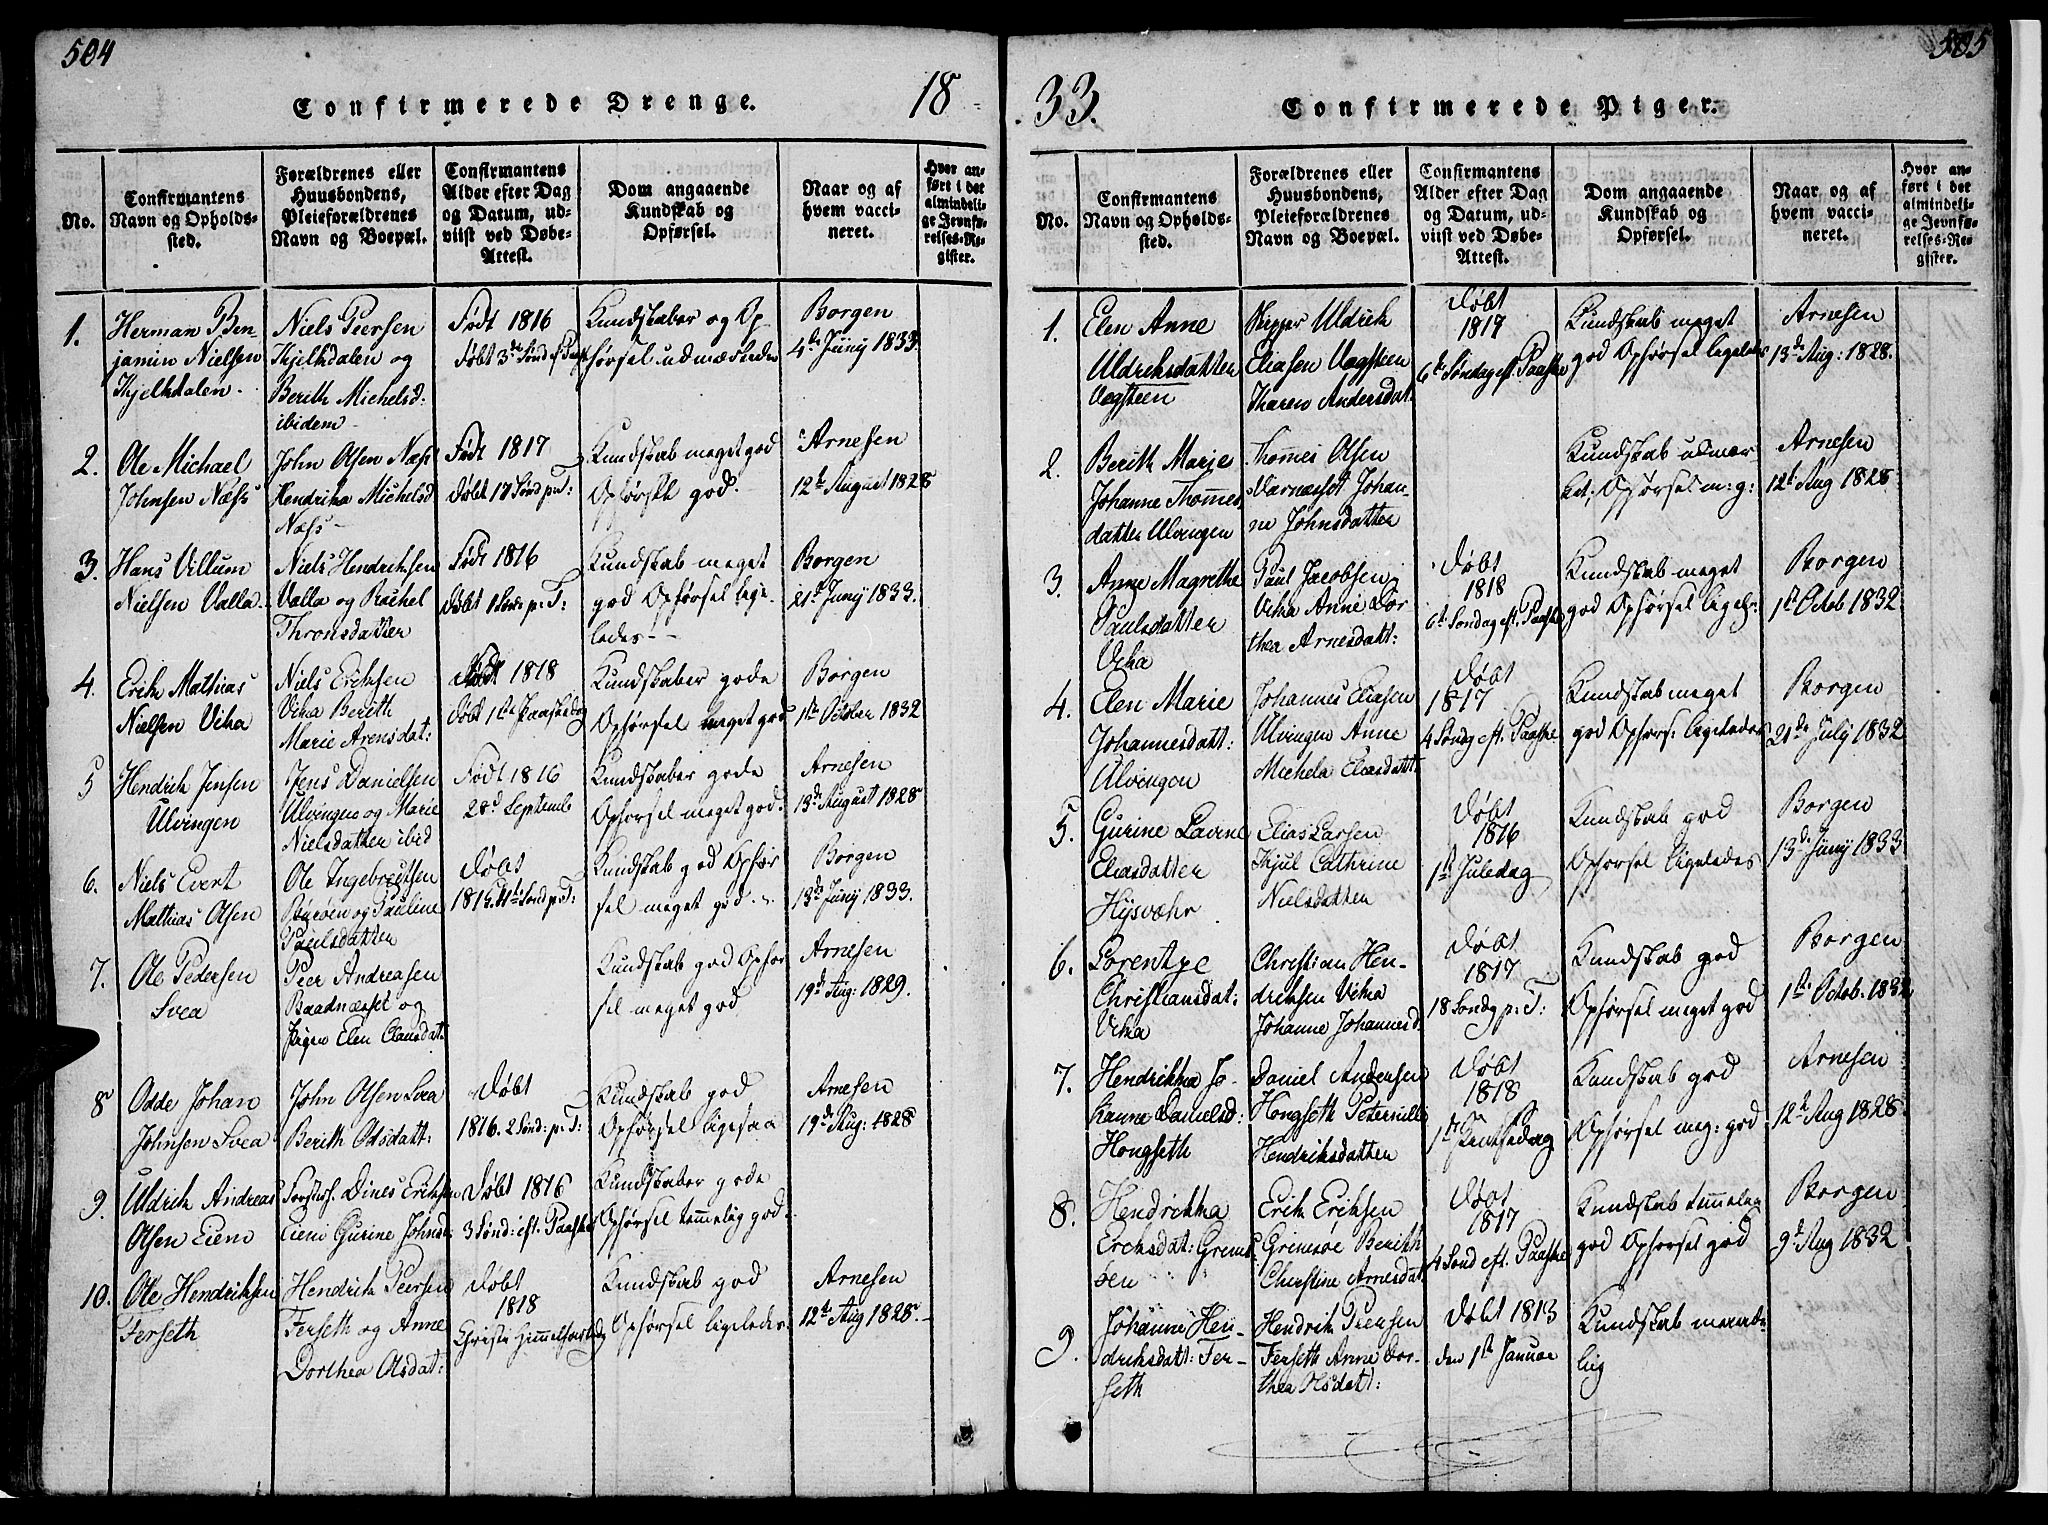 504
Confirmerede Drenge.
18
No.
Confirmantens
Navn og Opholds-
sted.
Forældrenes eller
Huusbondens,
Pleieforældrenes
Navn og Boepæl.
Confirmantens
Alder efter Dag
og Datum, ud-
viist ved Døbe-
Attest.
Dom angaaende
Kundskab og
Opførsel.
Naar og af
hvem vacci-
neret.
Hvor an-
ført i det
almindeli-
ge Jevnfø-
relses-Re-
gister.
1.
Herman Ben-
jamin Nielsen
Kjelkdalen
Niels Peersen
Kjelkdalen og
Berith Michelsd:
ibidem
Født 1816
Døbt 3de Sønd
Kundskaber og Op
førsel udmærkede
Borgen
4de Juny 1833.
2.
Ole Michael
Johnsen Næss
John Olsen Næss
Hendrika Michelsd
Næss
Født 1817
døbt 17 Sønd p. T:
Kundskab meget god
Opførsel god.
Arnesen
12te August 1828
3.
Hans Villum
Nielsen Valla
Niels Hendriksen
Valla og Rachel
Thronsdatter
Født 1816
Døbt 1 Sønd p: T:
Kundskab meget
god Opførsel lige-
ledes
Borgen
21de Juny 1833.
4.
Erik Mathias
Nielsen Vika
Niels Eriksen
Vika Berith
Marie Arensdat:
Født 1818
Døbt 1ste Paaskedag
Kundskaber gode
Opførsel meget god
Borgen
1ste October 1832
5
Hendrik Jensen
Ulvingen
Jens Danielsen
Ulvingen og Marie
Nielsdatter ibid
Født 1816
28d Septemb
Kundskaber gode
Opførsel meget god.
Arnesen
13de August 1828
6.
Niels Evert
Mathias Olsen
Ole Ingebrigtsen
og Pauline
Paulsdatter
Døbt
Sønd p. T:
Kundskab god Opfør
sel meget god
Borgen
13de Juny 1833.
7.
Ole Pedersen
Svea
Peer Andreasen
Baadnæsset og
Pigen Elen Clausdat:
Kundskab god Opfør
sel meget god
Arnesen
19de Aug: 1829.
8
Odde Johan
Johnsen Svea
John Olsen Svea
Berith Odsdatt:
Døbt
1816. 2 Sønd: p: T:
Kundskab god
Opførsel ligesaa
Arnesen
19de Aug: 1828
9.
Uldrik Andreas
Olsen Eiem
Dines Eriksen
Eiem Gurine Johnsd:
Døbt 1816
3 Sønd: eft. Paaske
Kundskaber gode
Opførsel temmelig god.
10.
Ole Hendriksen
Ferseth
Hendrik Peersen
Ferseth og Anne
Dorthea Olsdat:
Døbt
1818
Christi Himmelfartsdag
Kundskab god
Opførsel ligeledes
Arnesen
12te Aug 1828.
505
33.
Confirmerede Piger.
No.
Confirmantens
Navn og Opholds-
sted.
Forældrenes eller
Huusbondens,
Pleieforældrenes
Navn og Boepæl.
Confirmantens
Alder efter Dag
og Datum, ud-
viist ved Døbe-
Attest.
Dom angaaende
Kundskab og
Opførsel.
Naar og af
hvem vacci-
neret.
Hvor an-
ført i det
almindeli-
ge Jevnfø-
relses-Re-
gister.
1.
Elen Anne
Uldriksdatter
Vegsteen
Skipper Uldrik
Eliasen Vegsteen
Karen Andersdat:
Døbt
1817
6te Søndag eft. Paaske
Kundskab meget
god Opførsel ligeledes
Arnesen
13de Aug: 1828.
2.
Berith Marje
Johanne Thomes-
datter Ulvingen
Thomes Olsen
Varnæsset Johan-
ne Johnsdatter
Kundskab udmær
ket; Opførsel m: g:
Arnesen
12te Aug 1828
3.
Anne Magrethe
Paulsdatter
Vika
Paul Jacobsen
Vika Anne Dor-
thea Arnesdatt:
Døbt
1818
6te Søndag eft. Paaske
Kundskab meget
god Opførsel ligel:
Borgen
1ste Octob 1832
4.
Elen Marie
Johannesdatt:
Ulvingen
Johannes Eliasen
Ulvingen Anne
Michela Eliasdatt:
Døbt
1817
4 Søndg eft. Paaske
Kundskab meget
god Opførs: ligeledes
Borgen
21de July 1832
5.
Gurine Lavine
Eliasdatter
Hysvæhr
Elias Larsen
Kjul Cathrine
Nielsdatter
Døbt
1816
1ste Juledag
Kundskab god
Opførsel ligeledes
Borgen
13de Juny 1833
6.
Lorentze
Christiansdat:
Vika
Christian Hen-
driksen Vika
Johanne Johannesd.
Døbt
1817
18 Søndg p: T:
Kundskab god
Opførsel meget god
Borgen
1ste Octob. 1832
7.
Hendrikka Jo-
hanne Danielsd:
Hongseth
Daniel Andersen
Hongseth Peternille
Hendriksdatter
Døbt
1818
1ste Pintsedag
Kundskab god
Opførsel meg: god
Arnesen
12te Aug 1828.
8.
Hendrikka
Ericksdat: Grims
øen
Erik Eriksen
Grimsøe Berith
Christine Arnesdat
Døbt
1817
4 Sønd eft. Paaske
Kundskab temmelig
god Opførsel god
Borgen
9de Aug 1832
9.
Johanne Hen-
driksdatt: Fer-
seth
Hendrik Peersen
Ferseth Anne Dor-
thea Olsdat:
Døbt 1813
den 1ste Januar
Kundskab maade-
lig